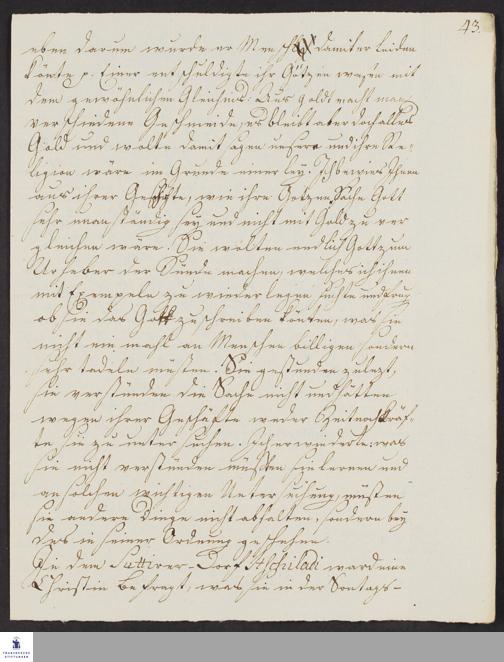 43.
eben darum wurde er Mensch, damit er leiden
könte p. Einer entschuldigte ihr Götzen wesen mit
dem gewöhnlichen Gleichnis: Aus Gold macht man
verschiedene Geschmeide, es bleibt aber doch alles
Gold und wolte damit sagen unsere und ihre Re-
ligion wäre im Grunde einerley. Ich bewies ihnen
aus ihrer Geschichte, wie ihre Götzen Sache Gott
sehr unanständig sey und nicht mit Gold zu ver
gleichen wäre. Sie wolten endlich Gott zum
Urheber der Sünde machen, welches ich ihnen
mit Exempeln zu wiederlegen suchte und frug
ob sie das Gott zuschreiben könten, was sie
nicht ein mahl an Menschen billigen sondern
sehr tadeln müsten. Sie gestunden zulezt,
sie verstünden die Sache nicht und hätten
wegen ihrer Geschäfte weder Zeit noch Kräf-
te sie zu unter suchen. Ich erwiederte, was
sie nicht verstünden müsten sie lernen und
an solchen wichtigen Unter suchung müsten
sie andere Dinge nicht abhalten, sondern bey
des in seiner Ordnung geschehen.
In dem Suttirer-Dorf Atschiladi ward eine
Christin befragt, was sie in der Sontags-
FRANCKESCHE
STIFTUNGEN